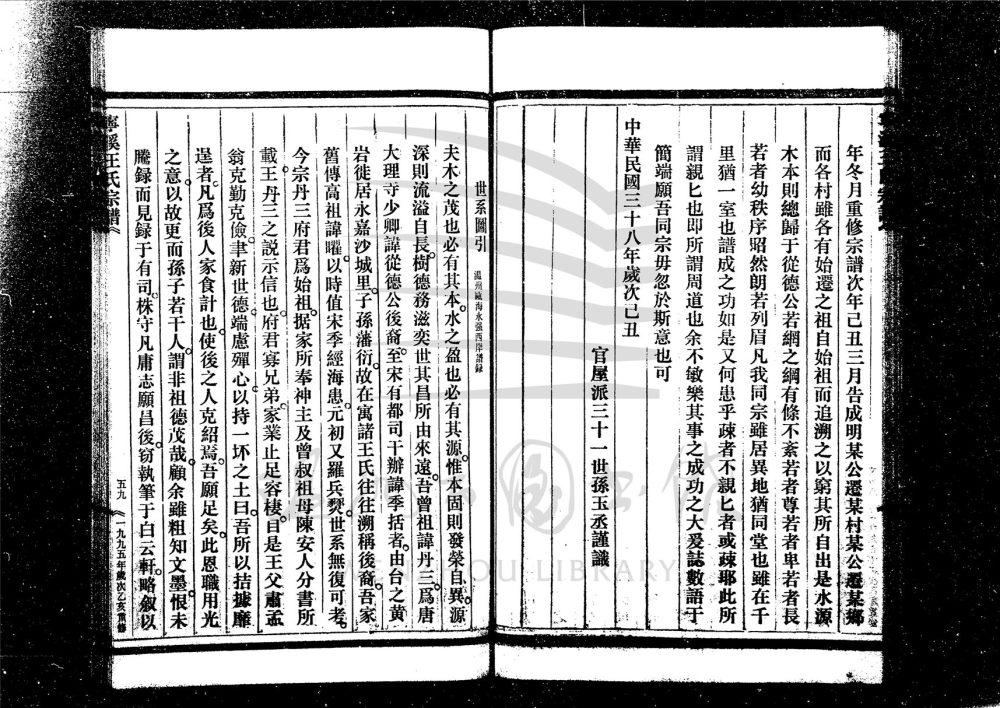 年冬月重修宗譜次年己丑三月告成明某公遷某村某公遷某鄉
而各村雖各有始遷之祖自始祖而追溯之以窮其所自出是水源
木本則總歸于從德公若網之綱有條不紊若者尊若者卑若者長
若者幼秩序昭然朗若列眉凡我同宗雖居異地猶同堂也雖在千
里猶一室也譜成之功如是又何患乎疎者不親匕者或疎耶此所
謂親匕也即所謂周道也余不敏樂其事之成功之大爰誌數語于
簡端願吾同宗毋忽於斯意也可
中華民國三十八年歲次己丑
官屋派三十一世孫玉丞謹識
世系圖引 溫州甌海永强西岸譜録
夫木之茂也必有其本水之盈也必有其源惟本固則發榮自異源
深則流溢自長樹德務滋奕世其昌所由來遠吾曾祖諱丹三爲唐
大理寺少卿諱從德公後裔至宋有都司干辦諱季括者由台之黄
岩徙居永嘉沙城里子孫藩衍故在寓諸王氏往往溯稱後裔吾家
舊傳高祖諱曜以時值宋季經海患元初又羅兵燹世系無復可考
今宗丹三府君爲始祖据家所奉神主及曾叔祖母陳安人分書所
載王丹三之説示信也府君寡兄弟家業止足容棲目是王父肅孟
翁克勤克儉聿新世德端慮殫心以持一坏之土曰吾所以拮據靡
遑者凡爲後人家食計也使後之人克紹焉吾願足矣此恩職用光
之意以故更而孫子若干人謂非祖德茂哉顧余雖粗知文墨恨未
騰録而見録于有司株守凡庸志願昌後窃執筆于白云軒略叙以
寧溪王氏宗譜
五九
一九九五年歲次乙亥重修